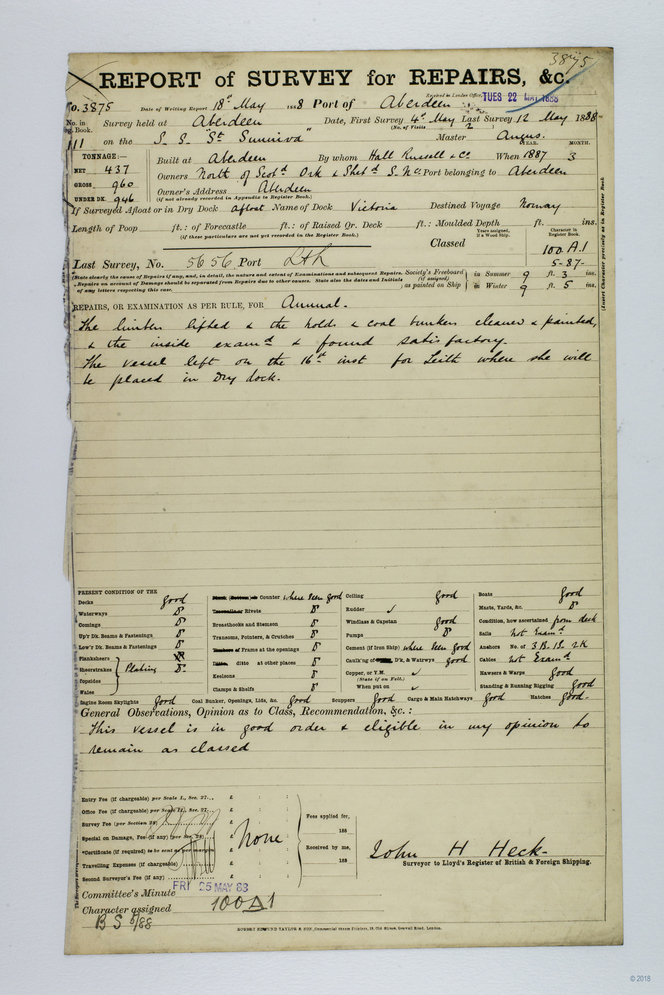 3875
REPORT of SURVEY for REPAIRS, &c.
No. 3875 Date of Writing Report 18th May 1888 Port of Aberdeen Received in London Office, TUES 22 MAY 1888
No. in Reg. Book. Survey held at Aberdeen Date, First Survey 4th May Last Survey 12 May 1888
(No. of Visits 2)
111 on the S. S. "St Sunniva" Master Angus.
TONNAGE:— YEAR. MONTH.
NET 437 Built at Aberdeen By whom Hall Russell & Co. When 1887 3
GROSS 960 Owners North of Scotd Ork & Shetd S. N. Co. Port belonging to Aberdeen
UNDER DK. 946 Owner's Address Aberdeen
(if not already recorded in Appendix to Register Book.)
If Surveyed Afloat or in Dry Dock afloat Name of Dock Victoria Destined Voyage Norway
Length of Poop ft.: of Forecastle ft.: of Raised Qr. Deck ft.: Moulded Depth ft. ins.
(if these particulars are not yet recorded in the Register Book.)
Years assigned, if a Wood Ship. Character in Register Book.
Classed 100 A.1
5-87-
Last Survey, No. 5656 Port Lth
State clearly the cause of Repairs if any, and, in detail, the nature and extent of Examinations and subsequent Repairs.
Repairs on account of Damage should be separated from Repairs due to other causes. State also the dates and Initials of any letters respecting this case.
Society's Freeboard (if assigned) as painted on Ship in Summer 9 ft. 3 ins.
in Winter 9 ft. 5 ins.
(Insert Character precisely as in Register Book
REPAIRS, OR EXAMINATION AS PER RULE, FOR Annual.
The limbers lifted & the holds & coal bunkers cleaned & painted,
& the inside examd & found satisfactory.
The vessel left on the 16th inst for Leith where she will
be placed in Dry dock.
PRESENT CONDITION OF THE
Decks good
Waterways Do
Comings Do
Up'r Dk. Beams & Fastenings Do
Low'r Dk. Beams & Fastenings Do
Planksheers
Sheerstrakes Plating Do
Topsides
Wales
Engine Room Skylights good
Counter where seen good
Rivets Do
Breasthooks and Stemson Do
Transoms, Pointers, & Crutches Do
of Frame at the openings Do
ditto at other places Do
Keelsons Do
Clamps & Shelfs Do
Coal Bunker, Openings, Lids, &c. good
Ceiling good
Rudder ✓
Windlass & Capstan good
Pumps Do
Cement (if Iron Ship) where seen good
Caulk'ng of D'k, & Waterwys good
Copper, or Y.M. ✓
(State if on Felt.)
When put on ✓
Scuppers good Cargo & Main Hatchways good
Boats good
Masts, Yards, &c. Do
Condition, how ascertained from deck
Sails not Examd
Anchors No. of 3 B. 1S. 2K
Cables not Examd
Hawsers & Warps good
Standing & Running Rigging good
Hatches good.
General Observations, Opinion as to Class, Recommendation, &c.:
This vessel is in good order & eligible in my opinion to
remain as classed
Entry Fee (if chargeable) per Scale I., Sec. 27... £ : :
Office Fee (if chargeable) per Scale II., Sec. 27. £ : :
Survey Fee (per Section 28) £ : :
Special on Damage, Fee (if any) (per Sec. 28) £ none
*Certificate (if required) to be sent as per margin £
Travelling Expenses (if chargeable) £ : :
Second Surveyor's Fee (if any) £ : :
Fees applied for, 188
Received by me, 188
John H Heck
Surveyor to Lloyd's Register of British & Foreign Shipping.
Committee's Minute FRI 25 MAY 88
Character assigned 100A1
B S 5/88
© 2018